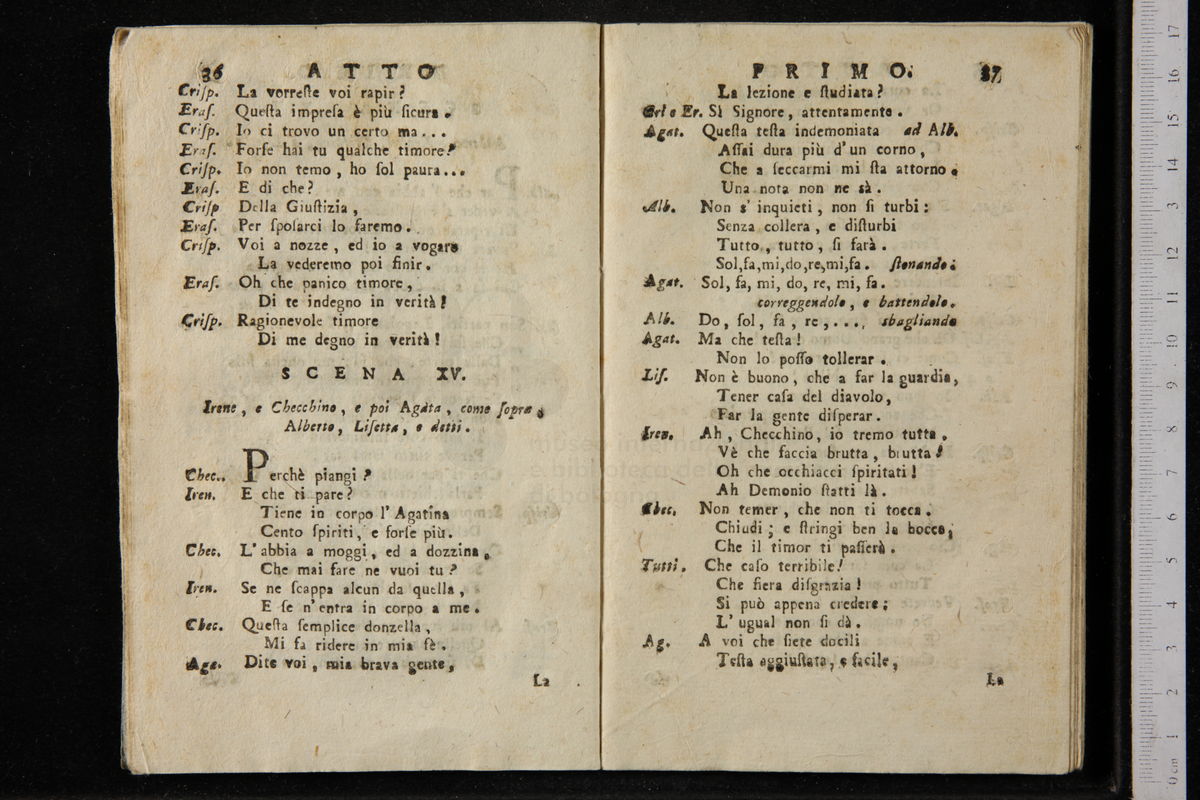 36 ATTO
Criſp. La vorreſte voi rapir?
Eraſ. Queſta impreſa è più ſicura.
Criſp. Io ci trovo un certo ma...
Eraſ. Forſe hai tu qualche timore?
Criſp. Io non temo, ho ſol paura...
Eraſ. E di che?
Criſp Della Giuſtizia,
Eraſ. Per ſpoſarci lo faremo.
Criſp. Voi a nozze, ed io a vogare
La vederemo poi finir.
Eraſ. Oh che panico timore,
Di te indegno in verità!
Criſp. Ragionevole timore
Di me degno in verità!
SCENA XV.
Irene, e Checchino, e poi Agàta, come ſopra,
Alberto, Liſetta, e detti.
Chec. Perchè piangi?
Iren. E che ti pare?
Tiene in corpo l'Agatina
Cento ſpiriti, e forſe più.
Chec. L'abbia a moggi, ed a dozzina,
Che mai fare ne vuoi tu?
Iren. Se ne ſcappa alcun da quella,
E ſe n'entra in corpo a me.
Chec. Queſta ſemplice donzella,
Mi fa ridere in mia fè.
Aga. Dite voi, mia brava gente,
La
PRIMO. 37
La lezione e ſtudiata?
Er. Sì Signore, attentamente.
Agat. Queſta teſta indemoniata ad Alb.
Aſſai dura più d'un corno,
Che a ſeccarmi mi ſta attorno,
Una nota non ne sà.
Alb. Non s'inquieti, non ſi turbi:
Senza collera, e diſturbi
Tutto, tutto, ſi farà.
Sol,fa,mi,do,re,mi,fa. ſtonando.
Agat. Sol, fa, mi, do, re, mi, fa.
correggendolo, e battendolo.
Alb. Do, ſol, fa, re,.... sbagliando
Agat. Ma che teſta!
Non lo poſſo tollerar.
Liſ. Non è buono, che a far la guardia,
Tener caſa del diavolo,
Far la gente diſperar.
Iren. Ah, Checchino, io tremo tutta,
Vè che faccia brutta, brutta!
Oh che occhiacci ſpiritati!
Ah Demonio ſtatti là.
Chec. Non temer, che non ti tocca.
Chiudi; e ſtringi ben la bocca,
Che il timor ti paſſerà.
Tutti. Che caſo terribile!
Che fiera diſgrazia!
Si può appena credere;
L'ugual non ſi dà.
Ag. A voi che ſiete docili
Teſta aggiuſtata, e facile,
La